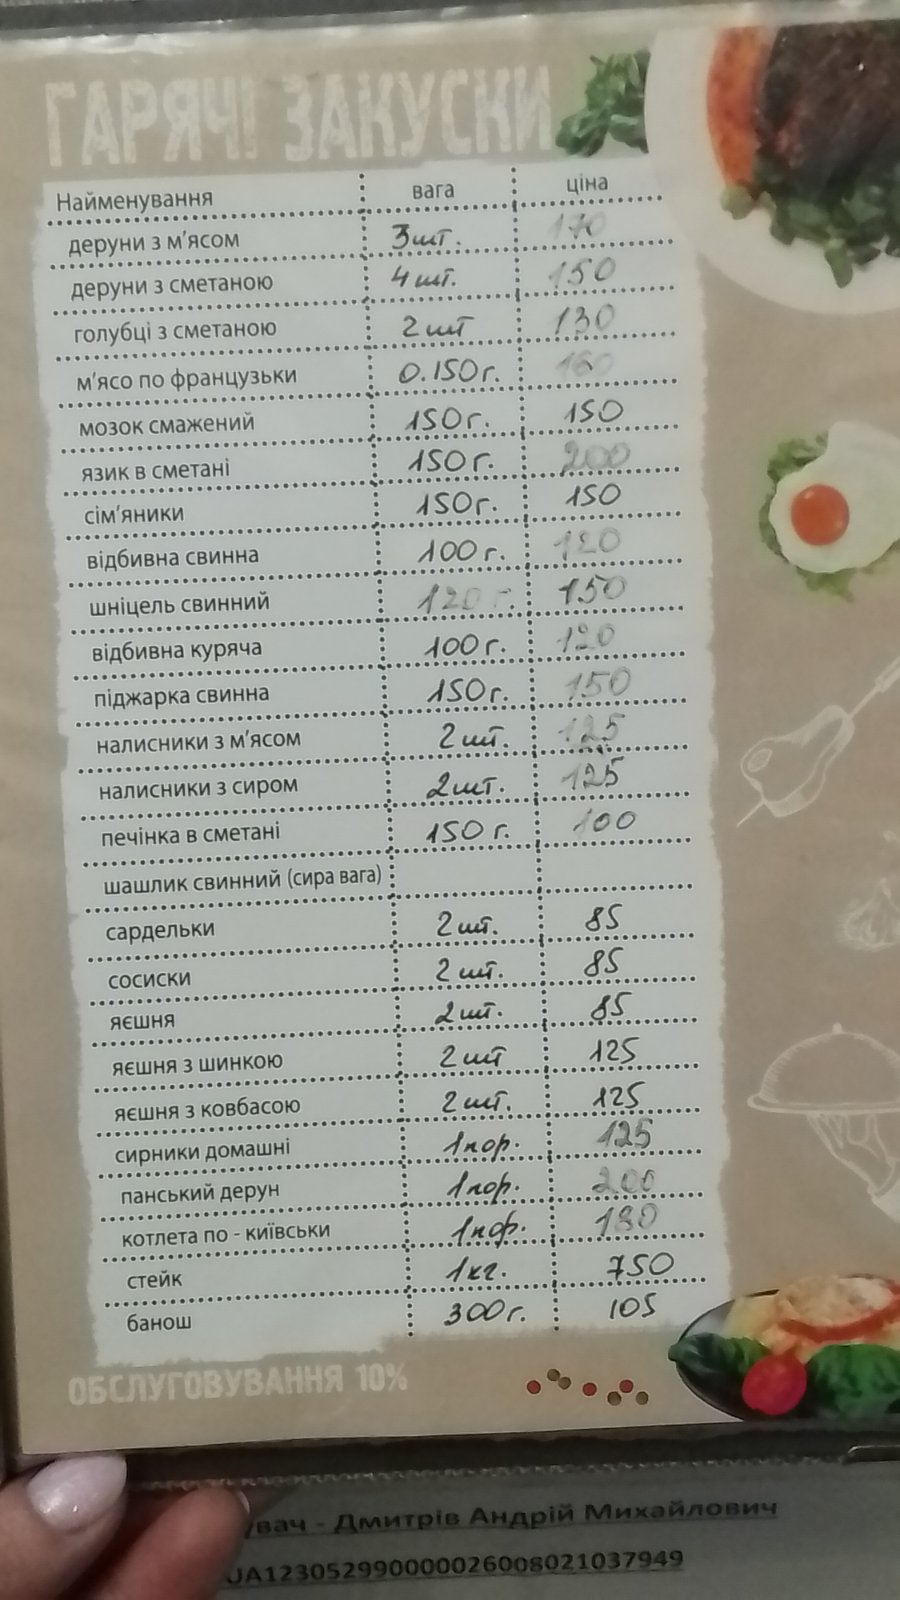 ГАРЯЧІ ЗАКУСКИ
Найменування вага ціна
деруни з м'ясом 3шт. 170
деруни з сметаною 4 шт. 150
голубці з сметаною 2 шт 130
м'ясо по французьки 0.150г. 160
мозок смажений 150г. 150
язик в сметані 150г. 200
сім'яники 150г. 150
відбивна свинна 100г. 120
шніцель свинний 120 г. 150
відбивна куряча 100г. 120
піджарка свинна 150г. 150
налисники з м'ясом 2 шт. 125
налисники з сиром 2шт. 125
печінка в сметані 150 г. 100
шашлик свинний (сира вага)
сардельки 2 шт. 85
сосиски 2 шт. 85
яєшня 2шт. 85
яєшня з шинкою 2 шт 125
яєшня з ковбасою 2 шт. 125
сирники домашні 1пор. 125
панський дерун 1пор. 200
котлета по - київськи 1пор. 180
стейк 1кг. 750
банош 300г. 105
ОБСЛУГОВУВАННЯ 10%
увач - Дмитрів Андрій Михайлович
UA123052990000026008021037949